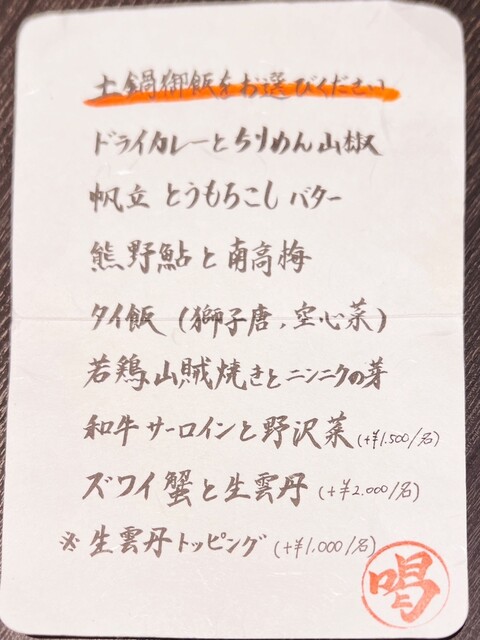 土鍋御飯をお選びください
ドライカレーとちりめん山椒
帆立 とうもろこし バター
熊野鮎と南高梅
タイ飯 (獅子唐,空心菜)
若鶏山賊焼きとニンニクの芽
和牛サーロインと野沢菜(+¥1.500/名)
ズワイ蟹と生雲丹 (+¥2.000/名)
※生雲丹トッピング (+¥1.000/名)
喝